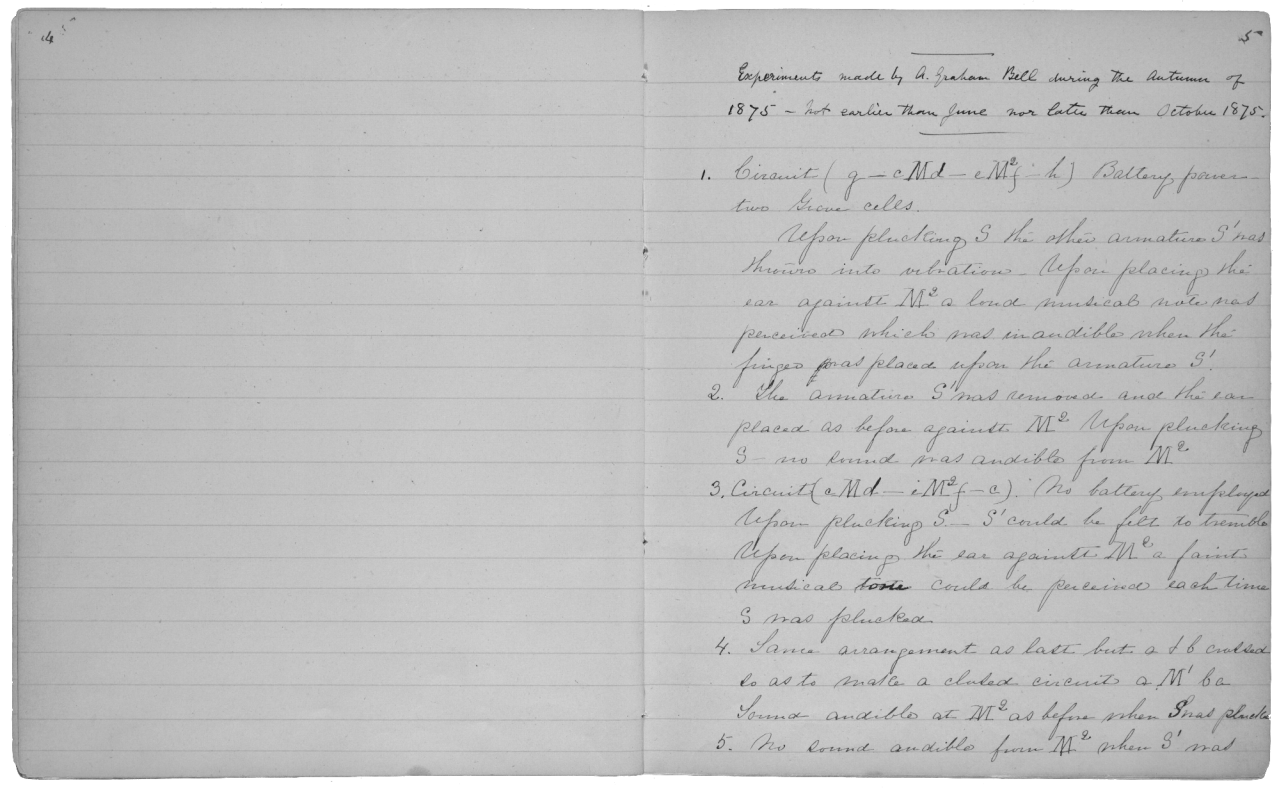 4
5
Experiments made by A. Graham Bell during the Autumn of
1875 - Not earlier than June nor later than October 1875.
1. Circuit ( g — c M d — e M² f — h ) Battery power
two Grove cells.
Upon plucking S the other armature S' was
thrown into vibration. Upon placing the
ear against M² a loud musical note was
perceived which was inaudible when the
finger was placed upon the armature S'.
2. The armature S' was removed and the ear
placed as before against M² Upon plucking
S — no sound was audible from M²
3. Circuit ( c M d — e M² f — c ). No battery employed
Upon plucking S — S' could be felt to tremble
Upon placing the ear against M² a faint
musical tone could be perceived each time
S was plucked
4. Same arrangement as last but a & b crossed
so as to make a closed circuit a M' b a
Sound audible at M² as before when S was plucked
5. No sound audible from M² when S' was